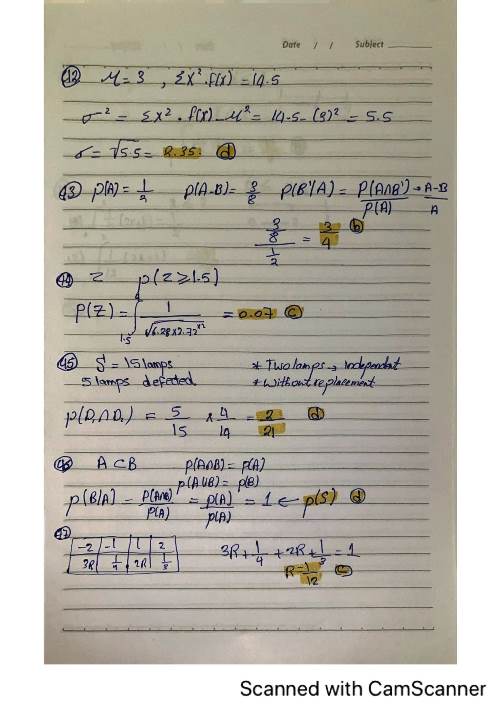 Date / / Subject
42 M = 3 , Σx². f(x) = 14.5
σ² = Σx². f(x) - M² = 14.5 - (3)² = 5.5
σ = √5.5 = 2.35. d
43 P(A) = 1/2 P(A-B) = 3/8 P(B'/A) = P(A∩B')/P(A) → A-B/A
3/8 / 1/2 = 3/4 b
44 Z P(Z ≥ 1.5)
P(Z) = ∫1.5 1/√6.28×2.72^x² = 0.07 c
45 S = 15 lamps * Two lamps → independent
5 lamps defected. * Without replacement
P(D₁∩D₂) = 5/15 × 4/14 = 2/21 d
46 A⊂B P(A∩B) = P(A)
P(A∪B) = P(B)
P(B/A) = P(A∩B)/P(A) = P(A)/P(A) = 1 ← P(S) d
47
-2 | -1 | 1 | 2 3R + 1/4 + 2R + 1/3 = 1
3R | 1/4 | 2R | 1/3 R = 1/12 c
Scanned with CamScanner